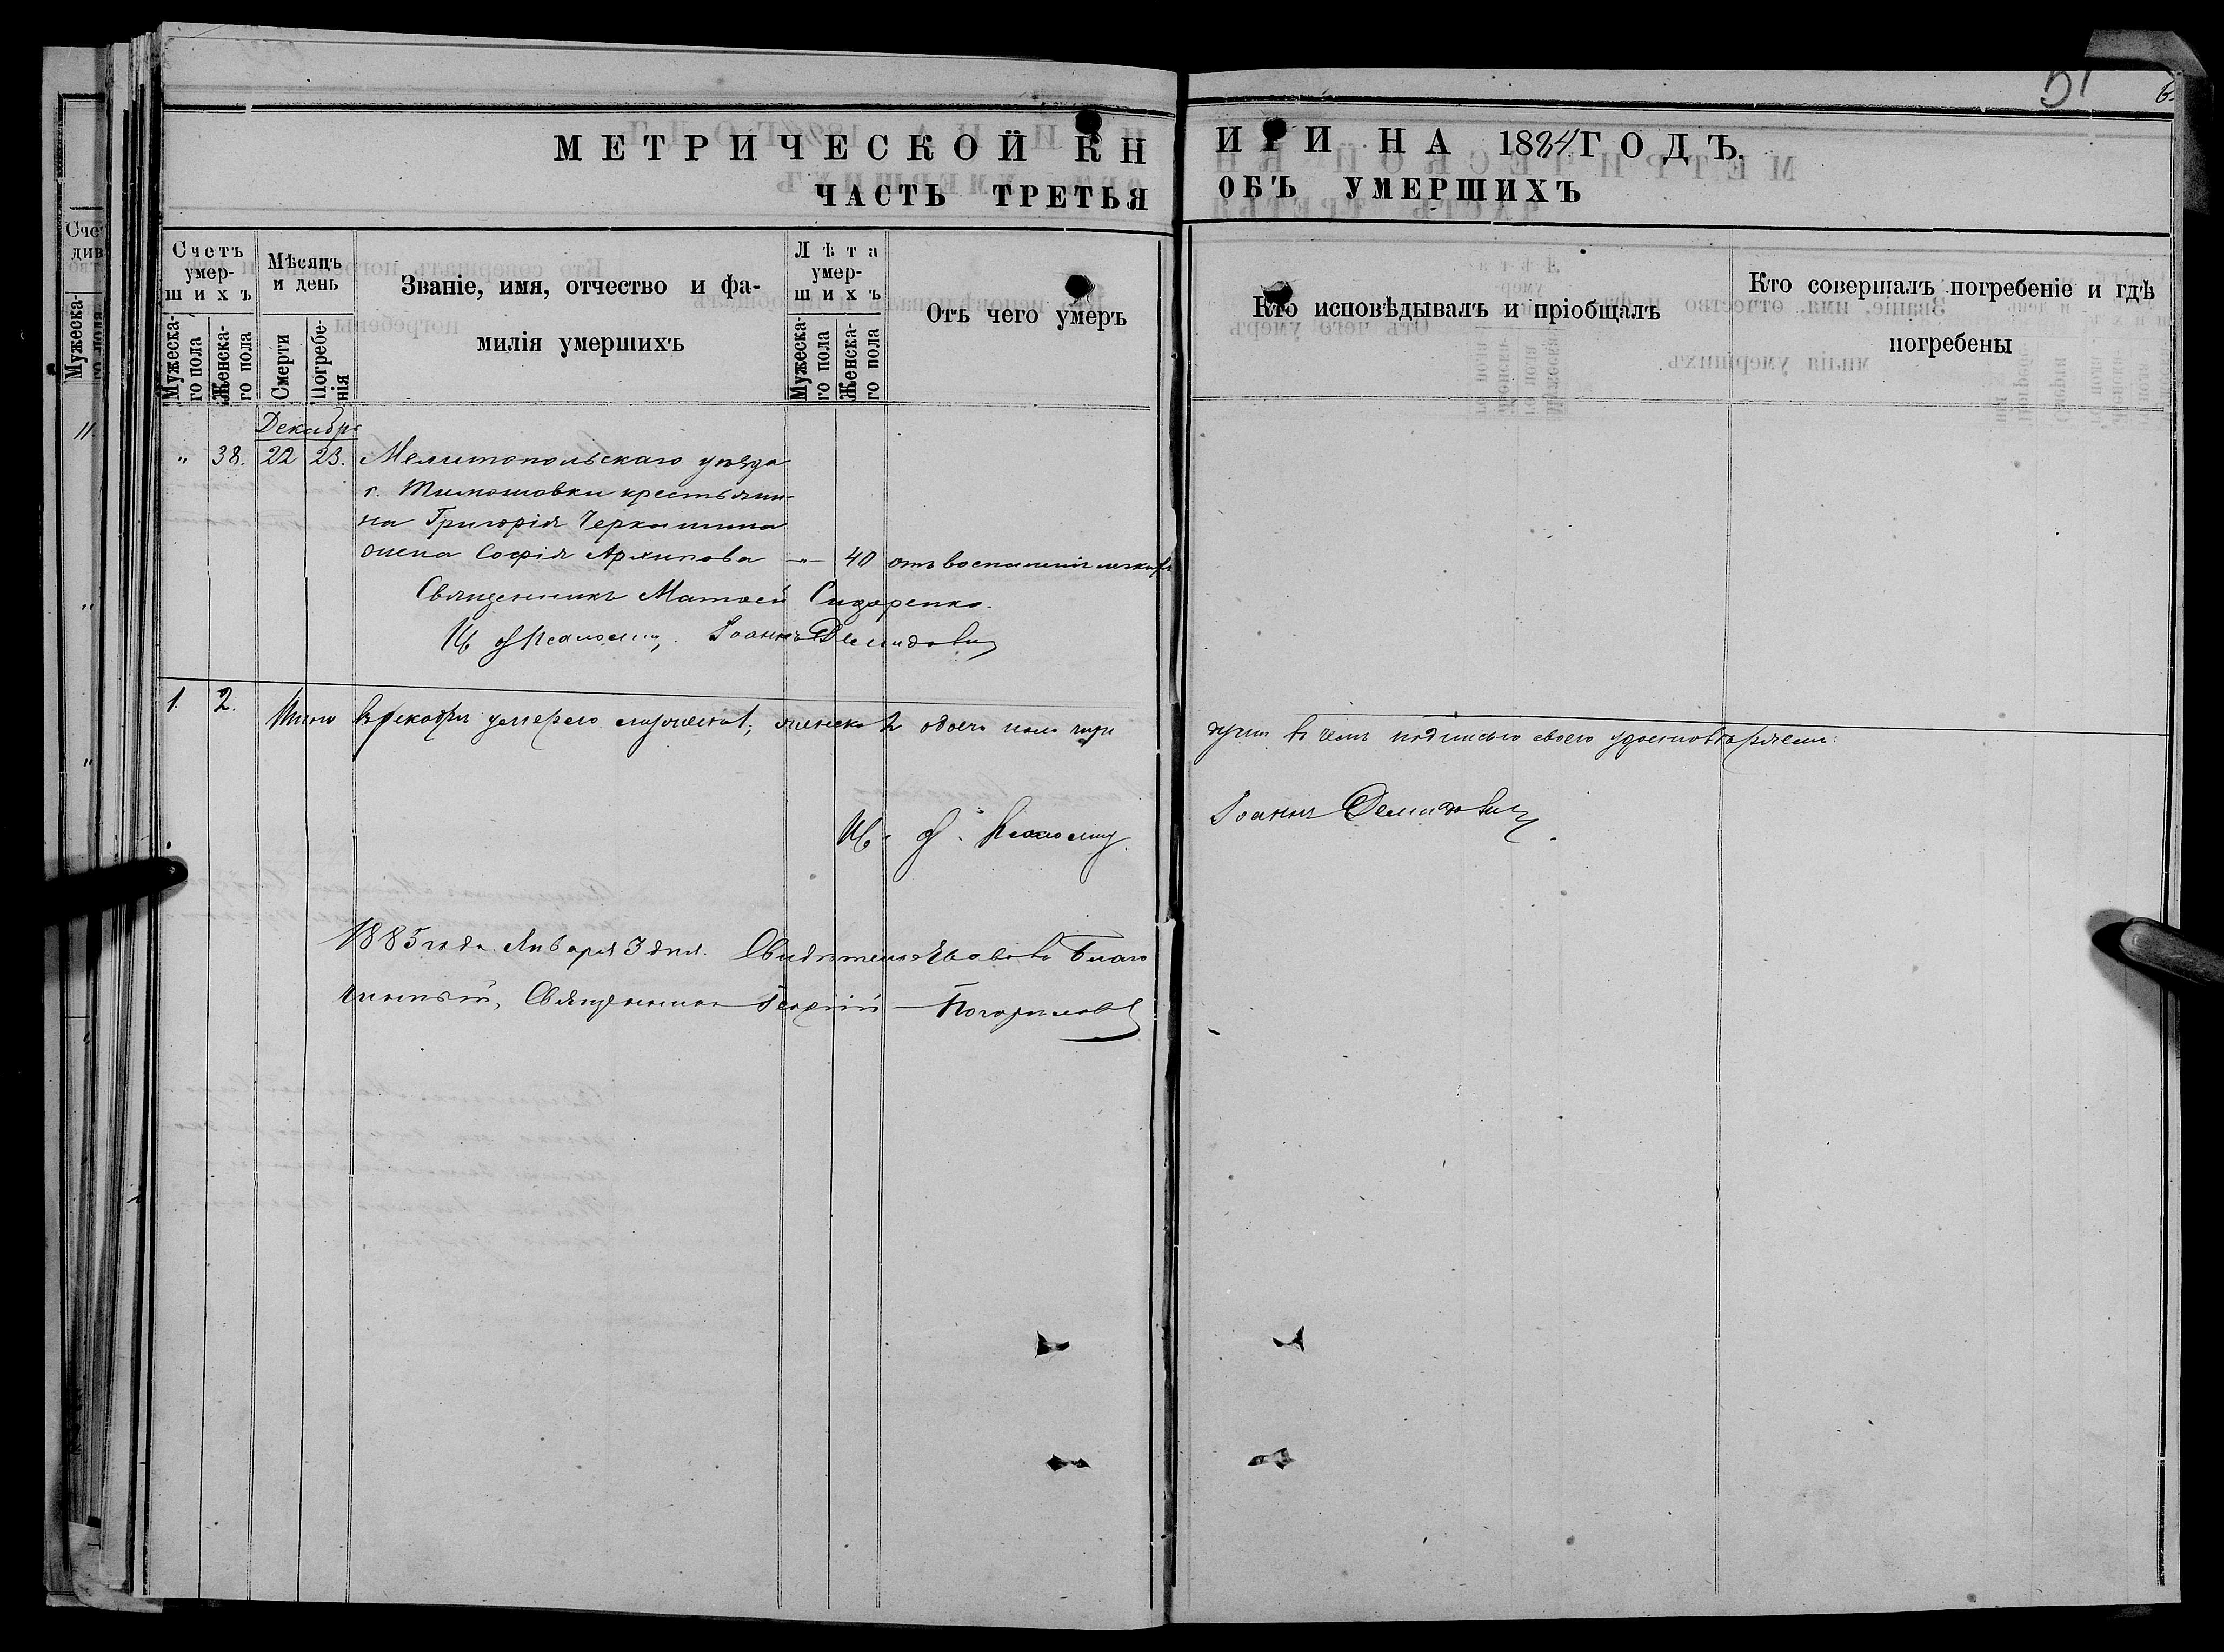 51
МЕТРИЧЕСКОЙ КН
ИГИ НА 1884 ГОДЪ.
ЧАСТЬ ТРЕТЬЯ
ОБЪ УМЕРШИХЪ
Счетъ умер-
шихъ
Мужеска-
го пола
Женска-
го пола
Мѣсяцъ
и день
Смерти
Погребе-
нія
Званіе, имя, отчество и фа-
милія умершихъ
Лѣта
умер-
шихъ
Мужеска-
го пола
Женска-
го пола
Отъ чего умеръ
Кто исповѣдывалъ и пріобщалъ
Кто совершалъ погребеніе и гдѣ
погребены
Декабрь
" 38. 22 23. Мелитопольскаго уѣзда
с. Тимошовки крестьяни-
на Григорія
жена Софія Архипова —"— 40 отъ воспаленія легкихъ
Священникъ Матѳей Сидоренко.
И. д. Псаломщ. Іоаннъ Демидовичъ
1. 2. Итого въ декабрѣ умерло мужеска 1, женска 2 обоего пола три
души въ чемъ подписью своею удостовѣряемъ:
И. д. Псаломщ. Іоаннъ Демидовичъ
1885 года Января 3 дня. Свидѣтельствовалъ Благо
чинный, Священникъ Георгій